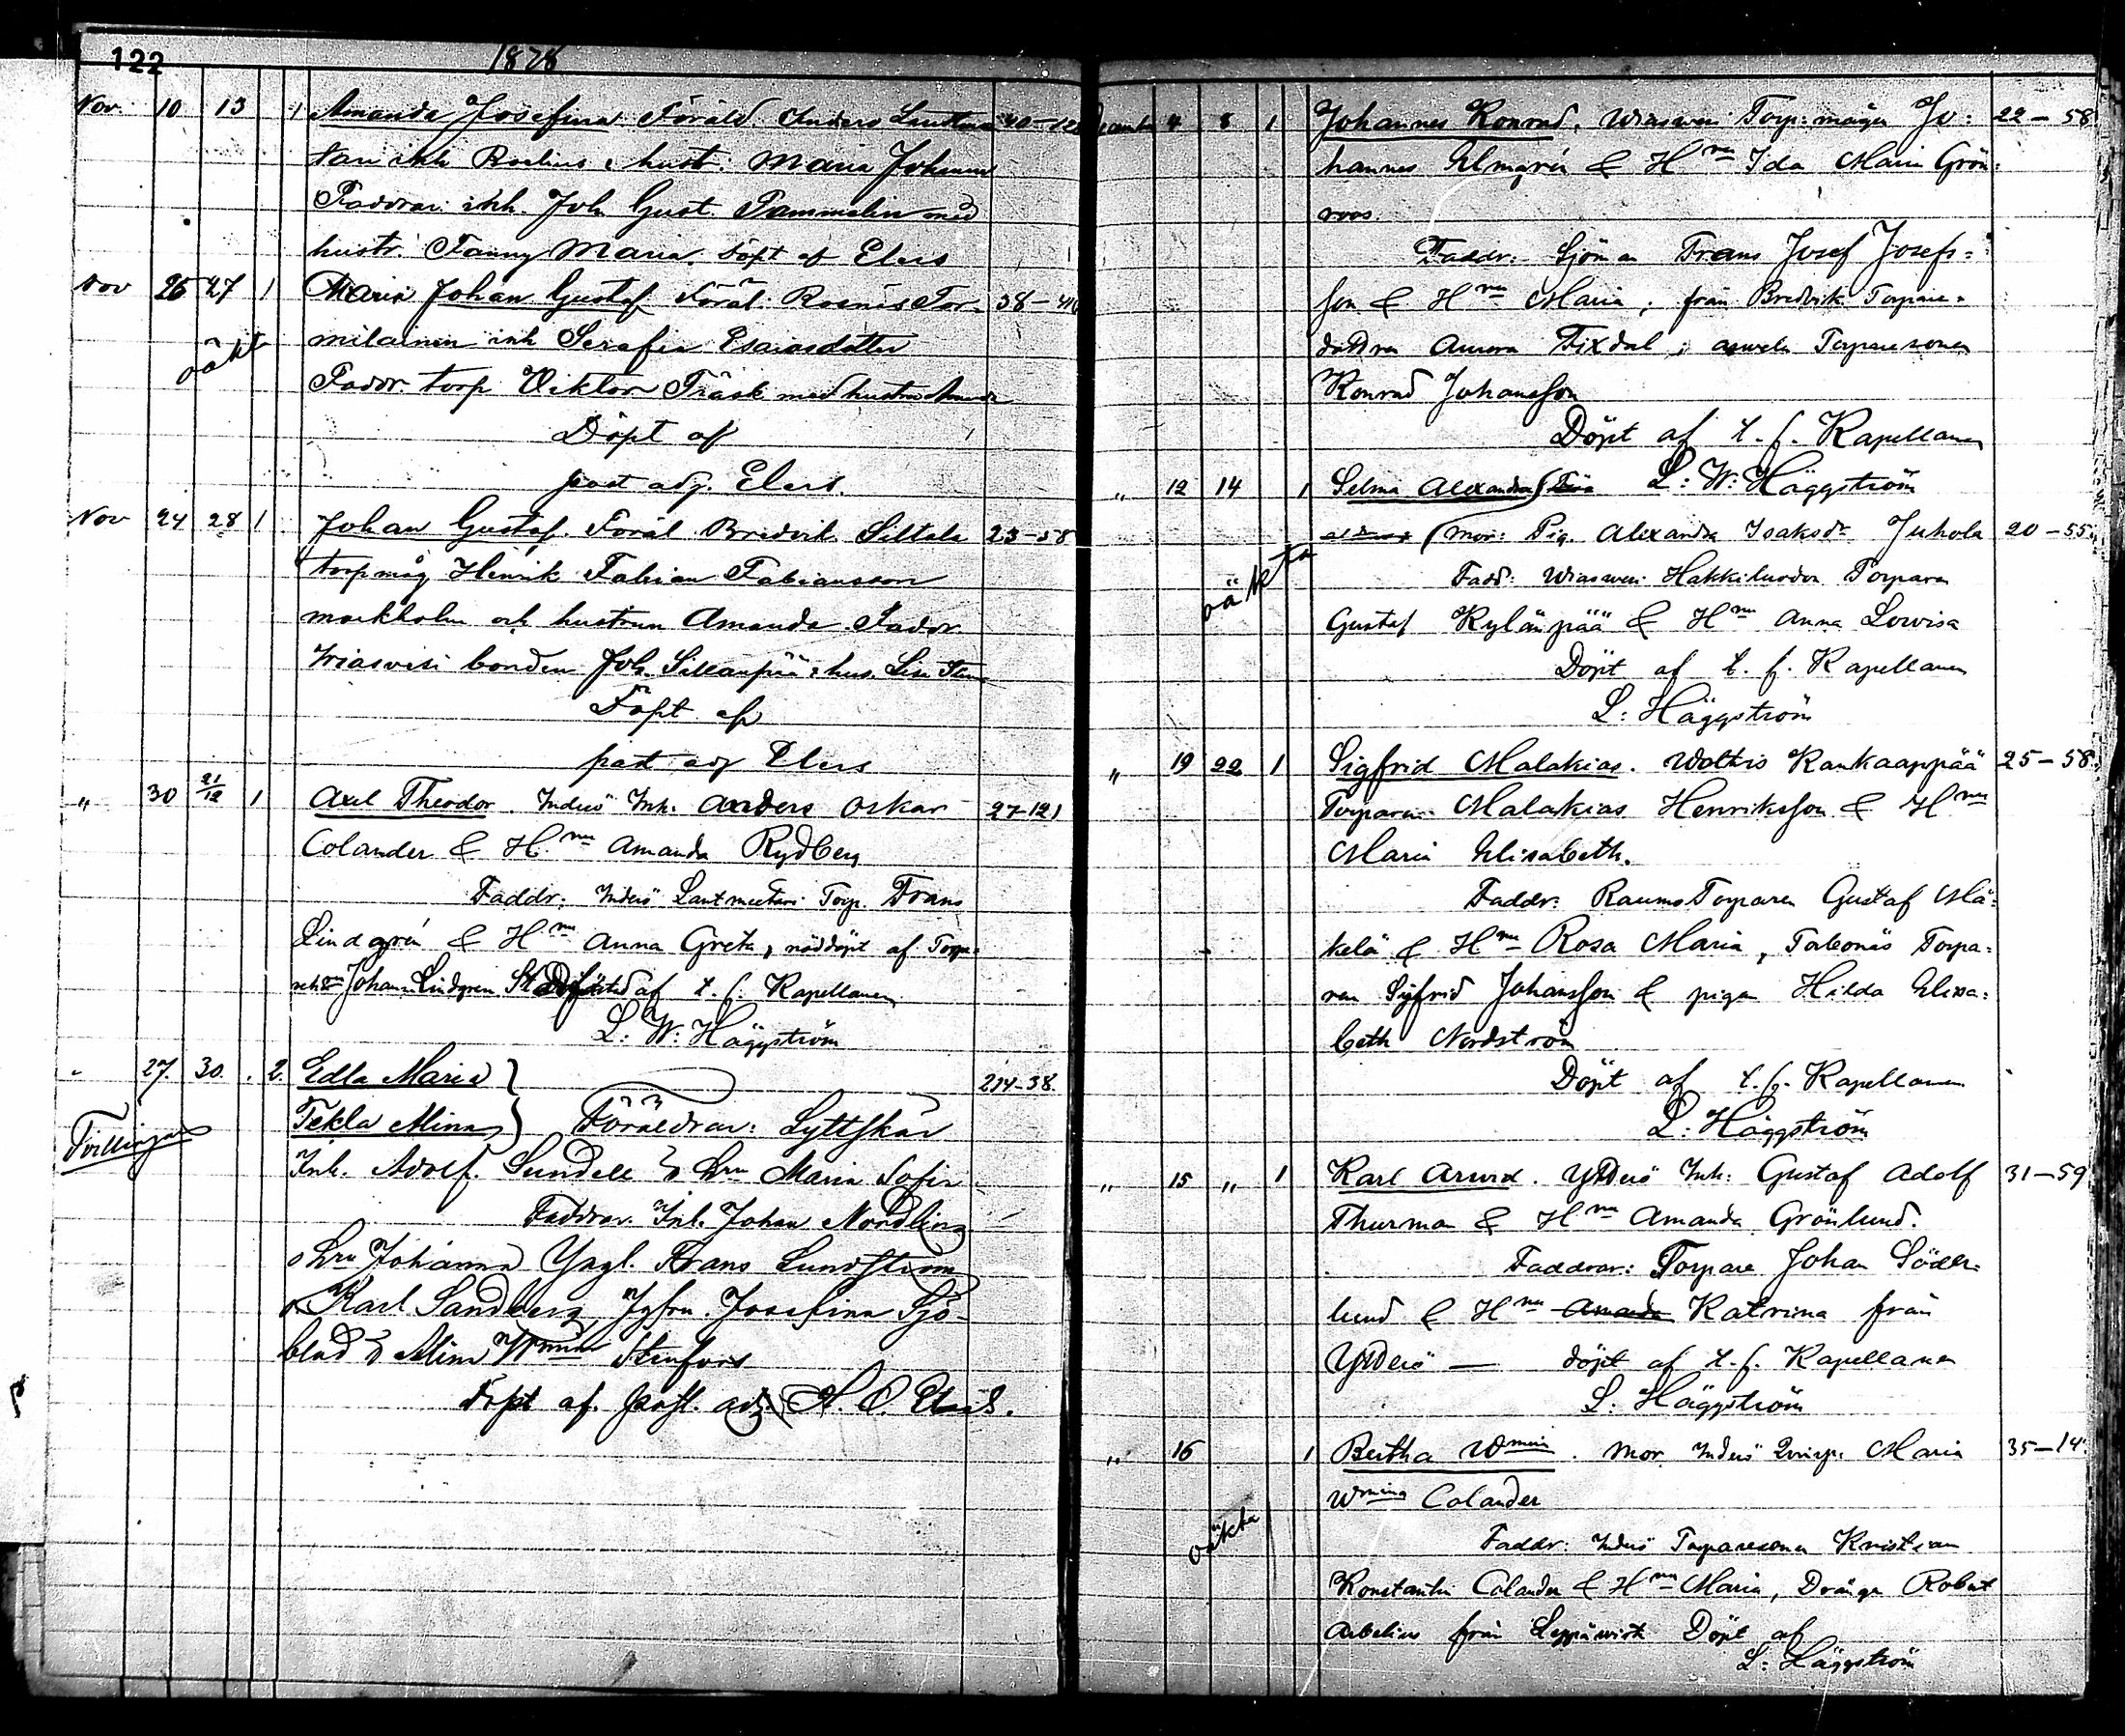 122
1878
Nov. 10 13 1 Amanda Josefina Föräld. Anders 40-12
inh hustr: Maria Johanna
Faddrar: inh. Joh Gust. Tammelin med
hustr. Fanny Maria. Döpt af Elers
Nov 26 27 1 Maria Johan Gustaf Föräl. Rosnäs Tor- 38-
oäkta milainen inh Serafia Esaiasdotter
Faddr. torp Viktor Träsk med hustru Amanda
Döpt af
past adj. Elers.
Nov 24 28 1 Johan Gustaf. Föräl Bredvik Siltala 23-58
torpmåg Henrik Fabian Fabiansson
och hustrun Amanda. Faddr.
Wiasvesi bonden Joh. Sillanpää & hus. Lisa
Döpt af
past adj Elers
" 30 21/12 1 Axel Theodor. Inderö Inh: Anders Oskar 27-121
Colander & H:nu Amanda Rydberg
Faddr: Inderö Lantmeetari Torp. Frans
Lindgrén & H:nu Anna Greta, nöddöpt af Torpa-
Johan Lindgren. af t. f. Kapellanen
L: W: Häggström
" 27. 30. 2. Edla Maria } 214-38.
Tvillingar Tekla Mina } Föräldrar: Lyttskär
Inh. Adolf. Sundell & Hru Maria Sofia
Faddrar. Inh. Johan Nordling
o Hru Johanna Yngl. Frans Lundström
o Karl Sandberg, Jgfru. Josefina Sjö-
blad & Mina Stenfors
Döpt af. past. adj. A. O. Elers.
December 4 8 1 Johannes Konrad. Wiasvesi Torp:mågen Jo: 22-58
hannes Elmgrén & H:nu Ida Maria Grön:
roos.
Faddr: Sjöman Frans Josef Josefs=
son & H:nu Maria, från Bredvik Torpare=
dottren Aurora Fixdal, Torparesonen
Konrad Johansson
Döpt af t. f. Kapellanen
L: W: Häggström
" 12 14 1 Selma Alexandra
oäkta (mor: Pig. Alexandra Isaksdr Juhola 20-55
Fadd: Wiasvesi Hakkiluodon Torparen
Gustaf Kylänpää & H:nu Anna Lovisa
Döpt af t. f. Kapellanen
L: Häggström
" 19 22 1 Sigfrid Malakias. Woltis Kankaanpää 25-58
Torparen Malakias Henriksson & H:nu
Maria Elisabeth.
Faddr: Raumo Torparen Gustaf Mä:
kelä & H:nu Rosa Maria, Torpa:
ren Sigfrid Johansson & pigan Hilda Elisa:
beth Nordström
Döpt af t. f. Kapellanen
L: Häggström
" 15 " 1 Karl Arvid. Ytterö Inh: Gustaf Adolf 31-59
Thurman & H:nu Amanda Grönlund.
Faddrar: Torpare Johan Söder-
lund & H:nu Amanda Katrina från
Ytterö — döpt af t. f. Kapellanen
L: Häggström
" 16 1 Bertha Wmina. Mor Inderö Qvinsp: Maria 35-14
Wmina Colander
oäkta Faddr: Inderö Torparesonen Kristian
Konstantin Colander & H:nu Maria, Drängen Robert
från Döpt af
L: Häggström